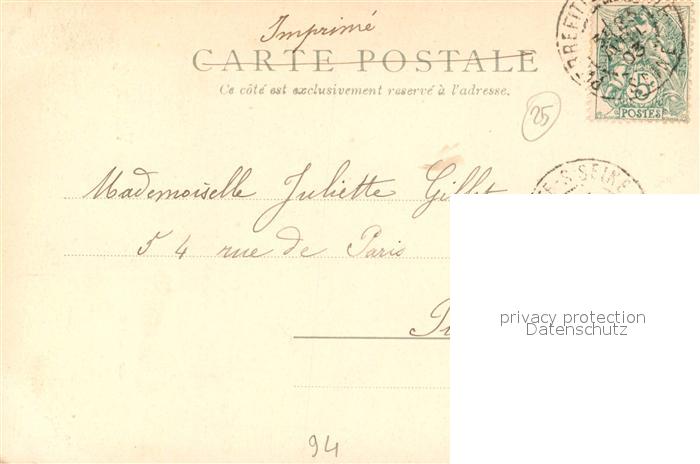 Imprimé
CARTE POSTALE
Ce côté est exclusivement reservé à l'adresse.
25
5
POSTES
PIERREFITTE
03
SEINE
Mademoiselle Juliette Gillet
S-SEINE
54 rue de Paris
privacy protection
Datenschutz
94